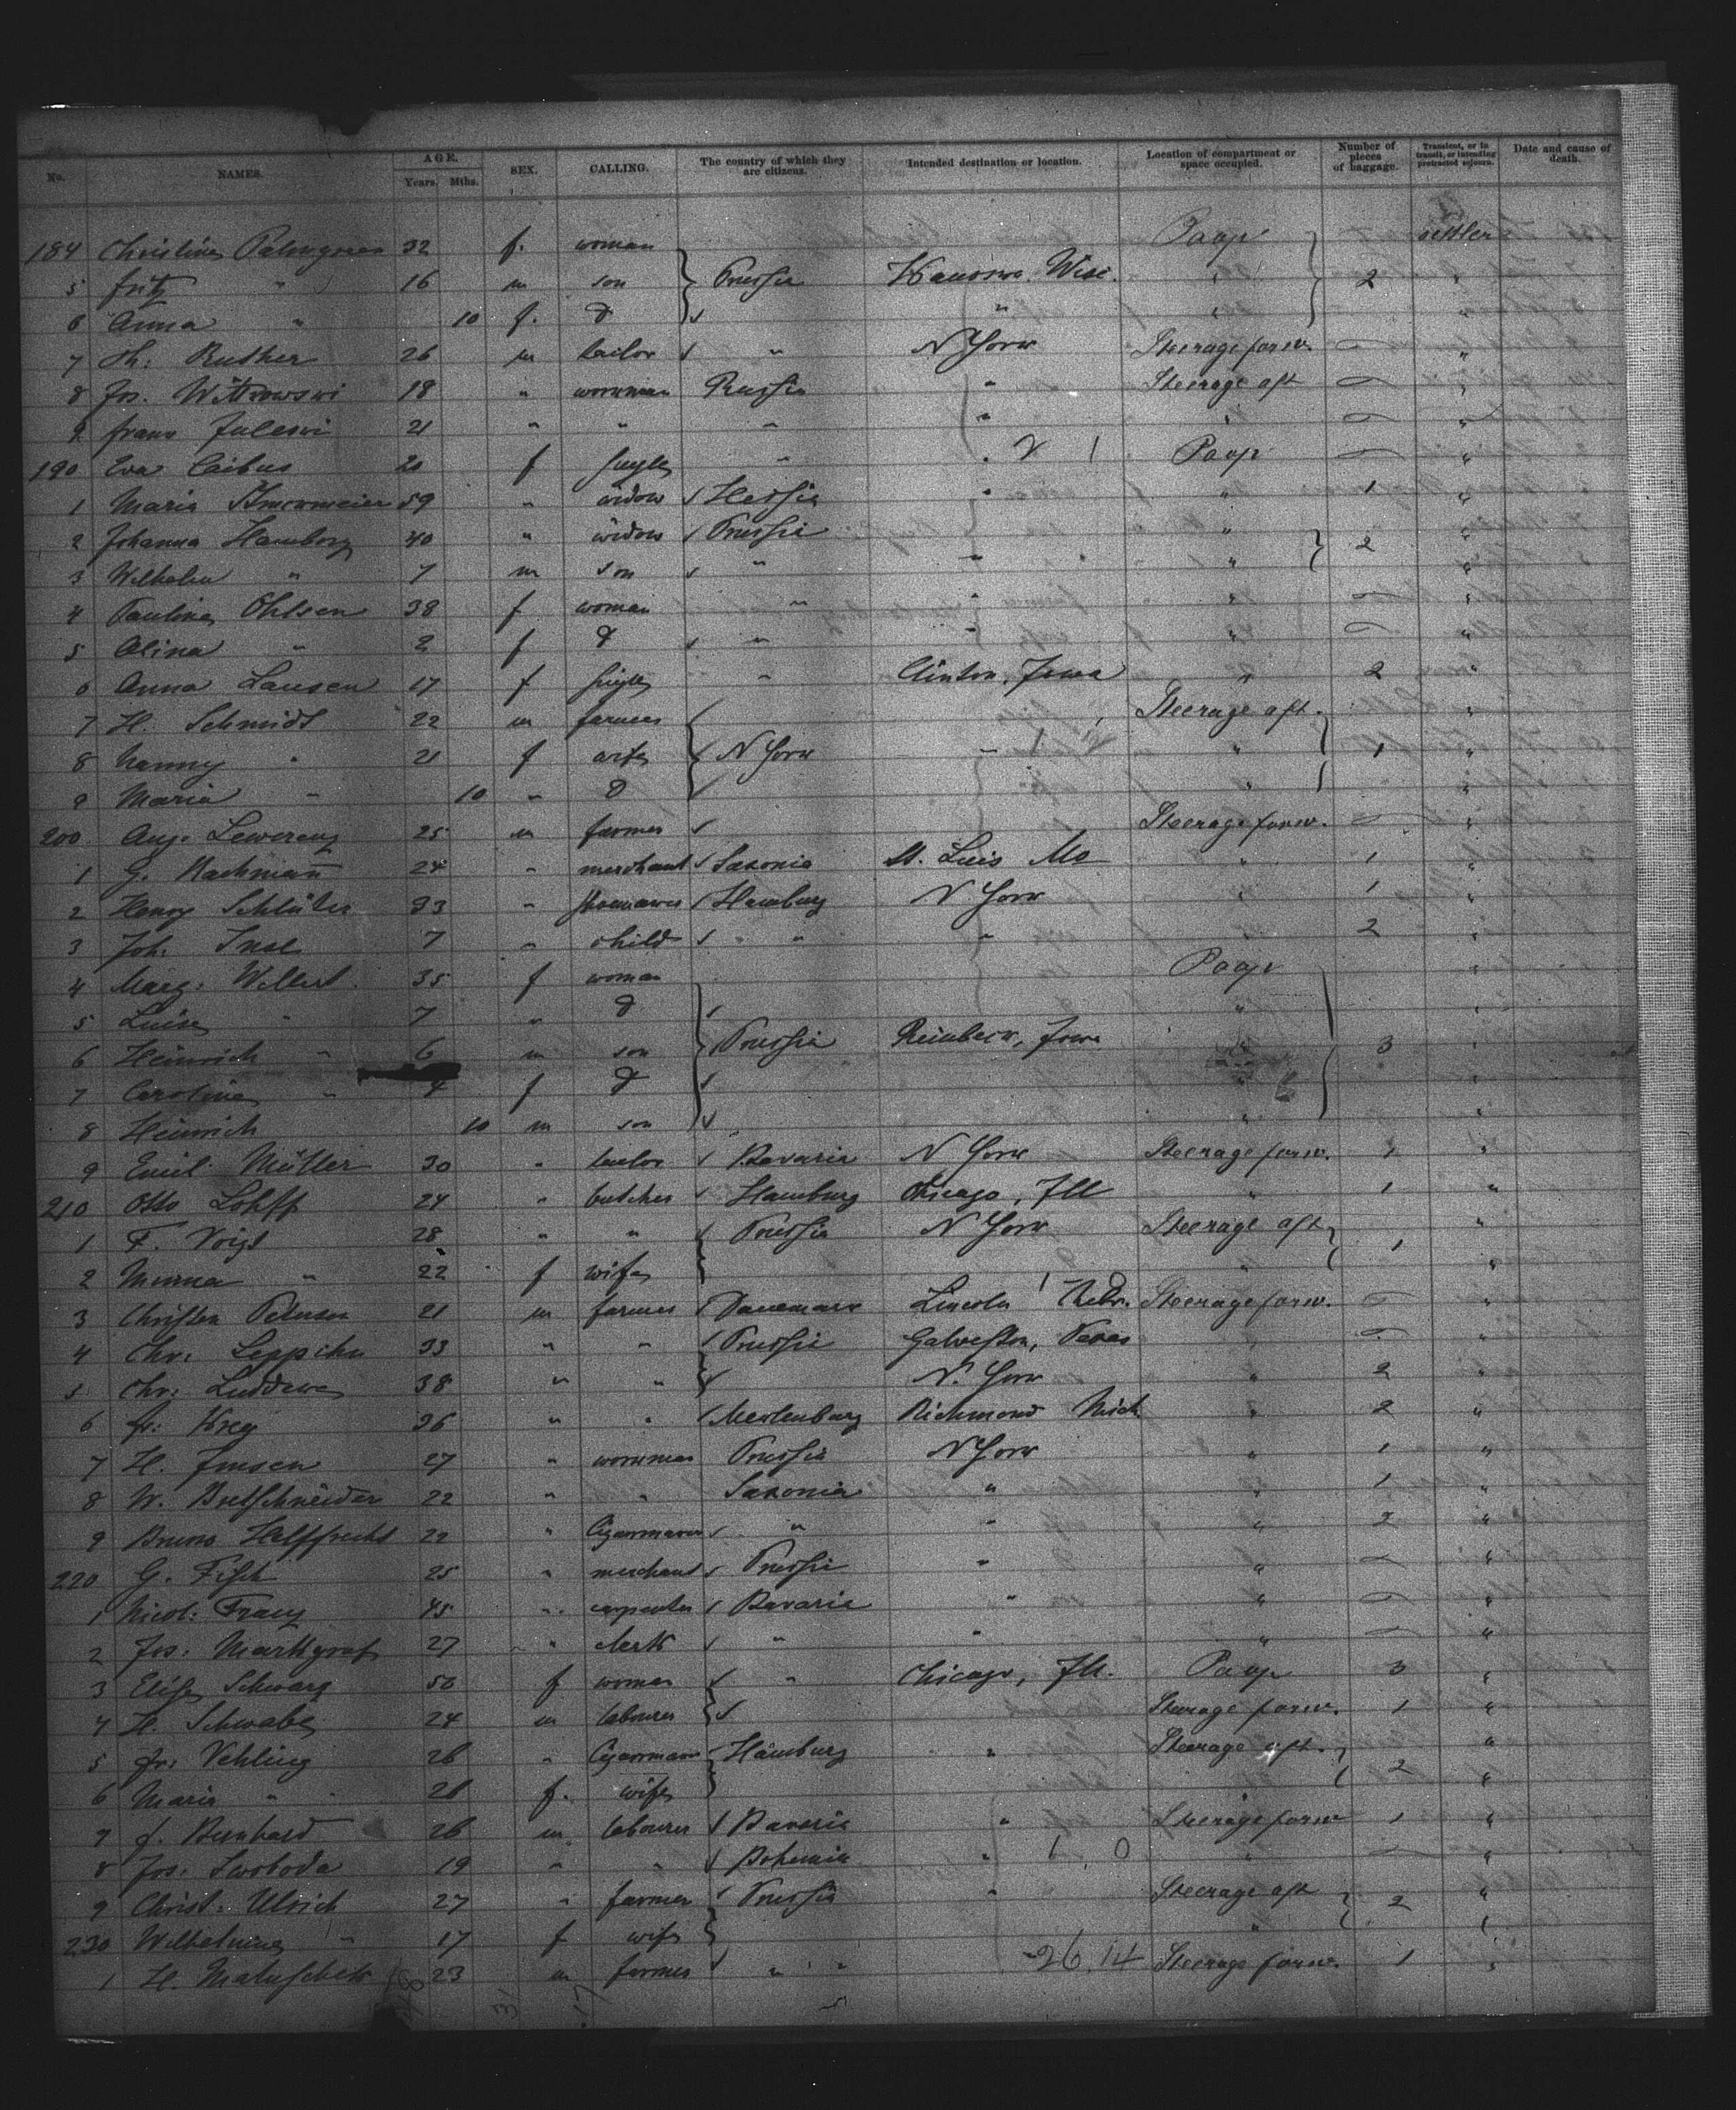 No. NAMES. AGE. Years. Mths. SEX. CALLING. The country of which they are citizens. Intended destination or location. Location of compartment or space occupied. Number of pieces of baggage. Transient, or in transit, or intending protracted sojourn. Date and cause of death.
184 Christine Palmgreen 32 f. woman Poop settler
5 Fritz " 16 m son Prussia Wise. " 2 "
6 Anna " 10 f. D " " "
7 Th: Rusther 26 m tailor " N York Steerage forw. — "
8 Jos. Wittkowski 18 " workman Russia " Steerage aft — "
9 Franz 21 " " " " " — "
190 Eva Caibus 20 f single " " Poop — "
1 Maria 59 " widow Hessia " " 1 "
2 Johanna Hamborg 40 " widow Prussia " 2 "
3 Wilhelm " 7 m son " " " "
4 Pauline Ohlsen 38 f woman " " — "
5 Alina " 2 f D " " " — "
6 Anna Lausen 17 f single " Clinton, Iowa " 2 "
7 H. Schmidt 22 m farmer Steerage aft. "
8 Nanny " 21 f wife N York " " 1 "
9 Maria " 10 " D " "
200 Aug. Lewerenz 25 m farmer Steerage forw. — "
1 G. Rachmann 24 " merchant Saxonia St. Luis Mo " 1 "
2 Henry Schlüter 33 " Hamburg N York " 1 "
3 Joh. 7 " child " " " 2 "
4 Marg: Wellert. 35 f woman Poop "
5 Luise " 7 " D " "
6 Heinrich " 6 m son Prussia Reinbeck, Iowa " 3 "
7 Caroline " 4 f D "
8 Heinrich 10 m son " "
9 Emil Müller 30 " tailor Bavaria N York Steerage forw. 1 "
210 Otto Lohff 24 " butcher Hamburg Chicago, Ill " 1 "
1 F. Voigt 28 " " Prussia N York Steerage aft "
2 Minna " 22 f wife " 1 "
3 Christen Peterson 21 m farmer Danemark Lincoln Nebr. Steerage forw. — "
4 Chr: Leppihn 33 " " Prussia Galveston, Texas " — "
5 Chr: 38 " " N. York " 2 "
6 Fr: Krey 36 " " Meclenburg Richmond Mich " 2 "
7 H. Jensen 27 " workman Prussia N York " 1 "
8 W. Bretschneider 22 " " Saxonia " " 1 "
9 Bruno Helffrecht 22 " Cigarmaker " " " 2 "
220 G. Fisch 25 " merchant Prussia " " — "
1 Nicol: Franz 45 " carpenter Bavaria " " — "
2 Jos: Markgraf 27 " clerk " " " — "
3 Elise Schwarz 50 f woman " Chicago, Ill. Poop 3 "
4 H. Schwabe 24 m labourer Steerage forw. 1 "
5 Fr: Vehling 26 " Cigarmaker Hamburg " Steerage aft. "
6 Maria " 26 f. wife " 2 "
7 J. Bernhard 26 m labourer Bavaria " Steerage forw 1 "
8 Jos: Swoboda 19 " " Bohemia " 1 0 " — "
9 Christ: Ulrich 27 " farmer Prussia " Steerage aft 2 "
230 Wilhelmine " 17 f wife " "
1 H. Matuschek 23 m farmer " " 26.14 Steerage forw. 1 "
31 17